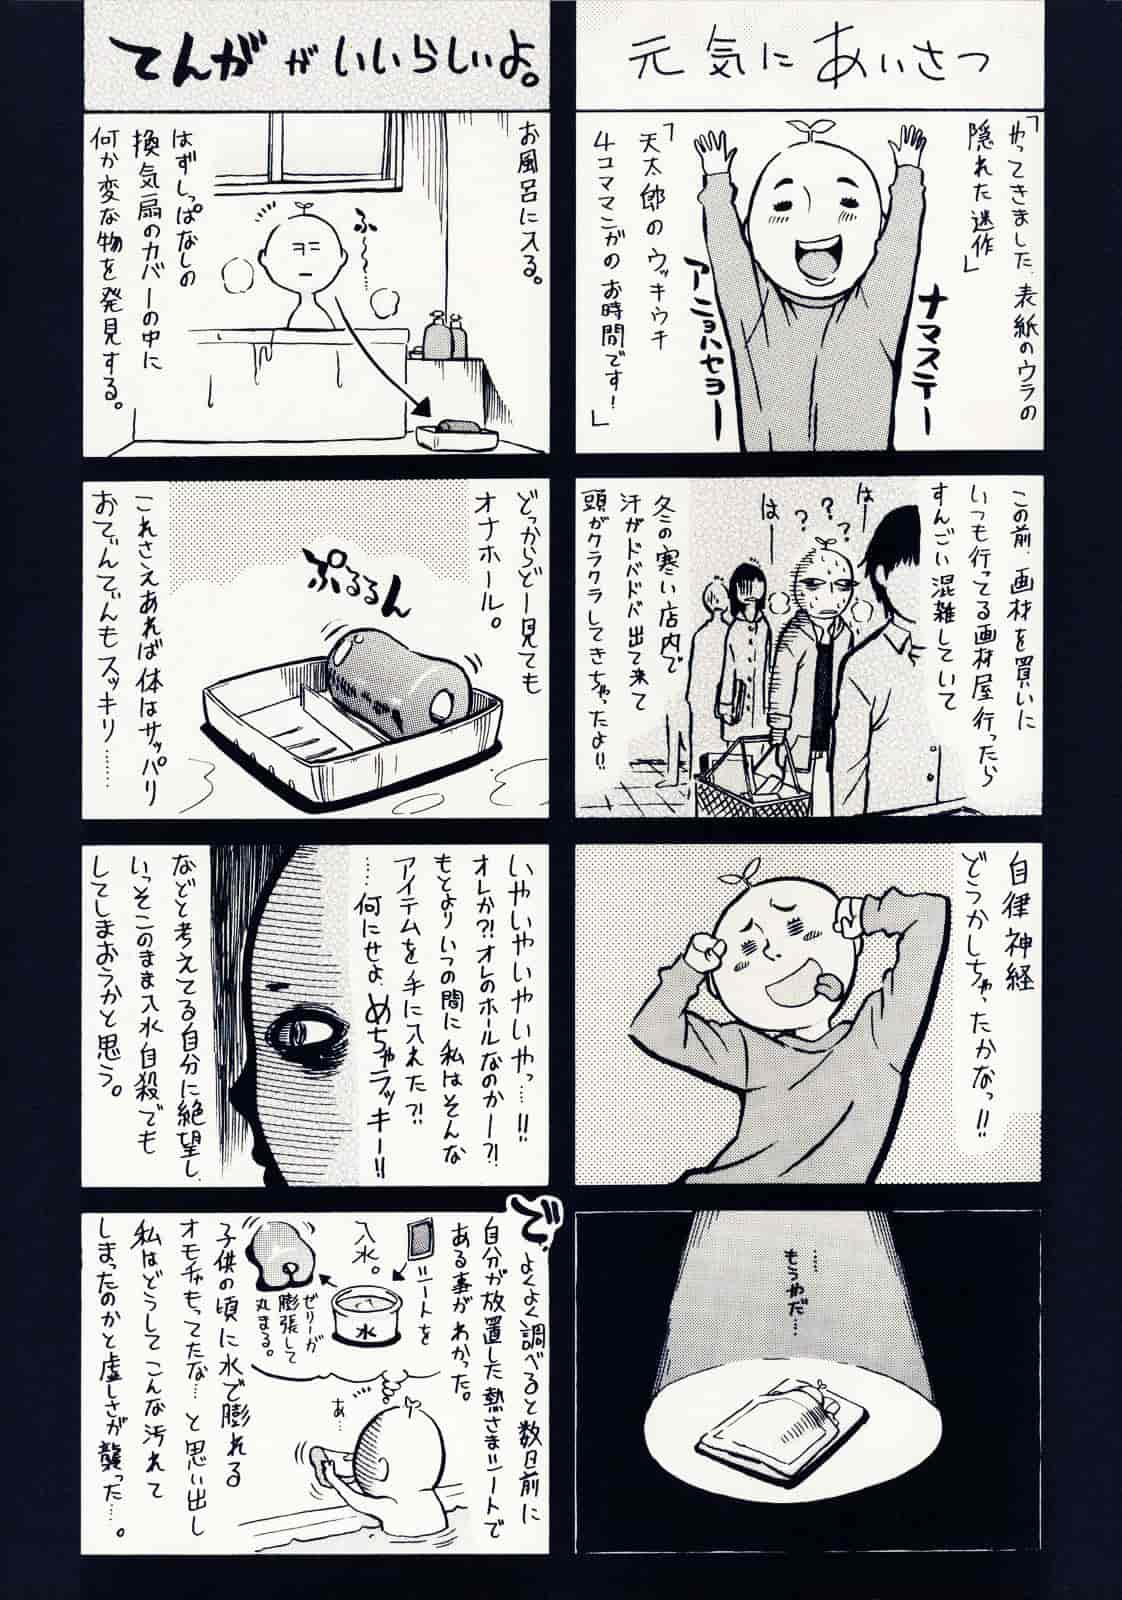 元気にあいさつ
「やってきました、表紙のウラの
隠れた迷作」
ナマステー
アニョハセヨー
「天太郎のウッキウキ
4コママンガのお時間です!」
この前、画材を買いに
いつも行ってる画材屋行ったら
すんごい混雑していて
はー
?
?
?
はー
冬の寒い店内で
汗がドバドバ出て来て
頭がクラクラしてきちゃったよ!!
自律神経
どうかしちゃったかなっ!!
……
もうやだ…
てんががいいらしいよ。
お風呂に入る。
ふ〜〜……
はずしっぱなしの
換気扇のカバーの中に
何か変な物を発見する。
どっからどー見ても
オナホール。
ぷるるん
これさえあれば体はサッパリ
おてぃんてぃんもスッキリ………
いやいやいやいやっ…!!
オレか?!オレのホールなのかー?!
もとよりいつの間に私はそんな
アイテムを手に入れた?!
……何にせよ、めちゃラッキー!!
などと考えてる自分に絶望し、
いっそこのまま入水自殺でも
してしまおうかと思う。
で、よくよく調べると数日前に
自分が放置した熱さまシートで
ある事がわかった。
シートを
入水。
水
ゼリーが
膨張して
丸まる。
あ…
子供の頃に水で膨れる
オモチャもってたな…と思い出し
私はどうしてこんな汚れて
しまったのかと虚しさが襲った…。